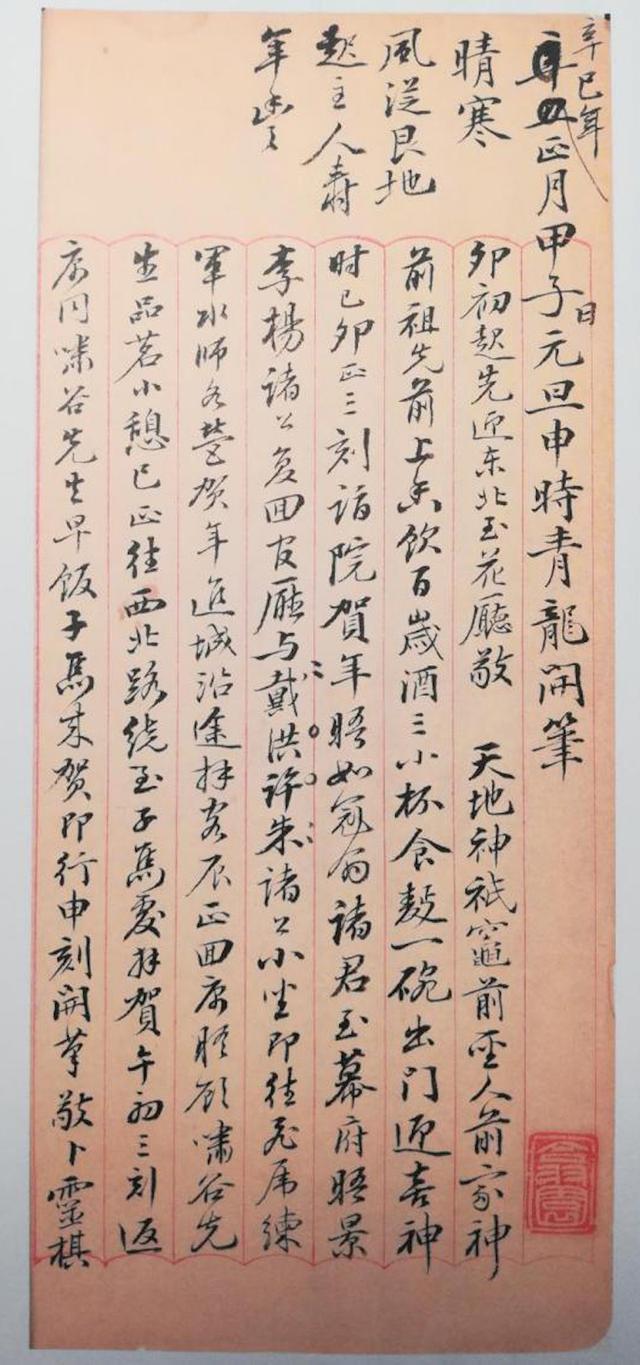 辛巳年
正月甲子日元旦申時青龍開筆
晴寒
風從艮地
起主人壽
年豐
卯初起先迎东北至花廳敬 天地神祇竈前聖人前家神
前祖先前上香飲百歲酒三小杯食麩一碗出门迎喜神
时已卯正三刻詣院賀年晤如冠翁諸君至幕府晤景
李楊諸公复回官廰与戴洪許朱諸公小坐即往虎字練
軍水师各营贺年進城沿途拜客辰正回寓晤顧嘯谷先
生品茗小憩巳正往西北路绕至子馬處拜賀午初三刻返
寓同嘯谷先生早饭子馬来贺即行申刻開筆敬卜靈棋